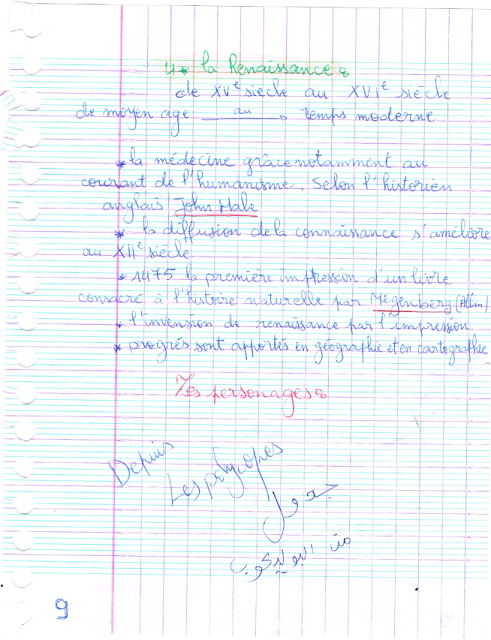 4* la Renaissance :
de XVe siècle au XVIe siècle
de moyen age au temps moderne
* la médecine grâce notamment au
courant de l'humanisme. Selon l'historien
anglais John Hale
* la diffusion de la connaissance s'améliore
au XIIe siècle
* 1475 la première impression d'un livre
consacré à l'histoire naturelle par Megenberg
* l'invension de renaissance par l'impression
* progrés sont apportés en géographie et en cartographie
Les personages :
Depuis
Les polycopes
جدول
من البوليكوب
9